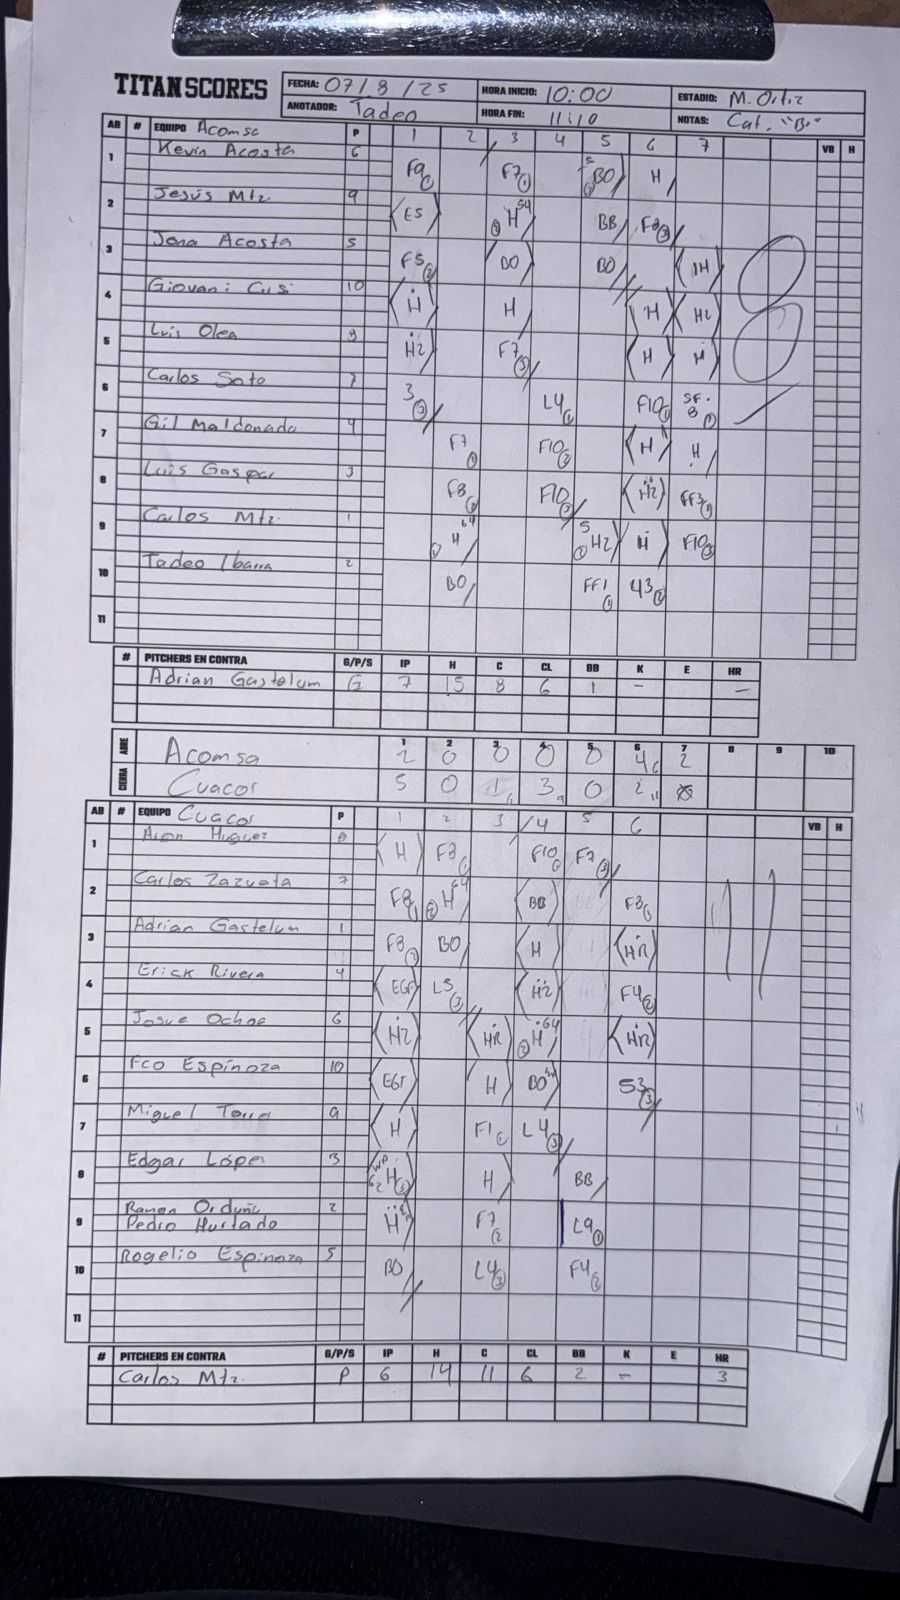 TITANSCORES
FECHA: 07/8/25 HORA INICIO: 10:00 ESTADIO: M. Ortiz
ANOTADOR: Tadeo HORA FIN: 11:10 NOTAS: Cat. "B"
AB # EQUIPO Acomsa P 1 2 3 4 5 6 7 VB H
1 Kevin Acosta 6 F9 F7 1 BO H
2 Jesús Mtz 9 ES H 54 BB F8
3 Jona Acosta 5 F5 2 BO BO 1H
4 Giovani Cusi 10 H H H H2
5 Luis Olea 8 H2 F7 3 H H
6 Carlos Soto 7 3 L4 1 F10 SF.8 1
7 Gil Maldonado 4 F7 1 F10 2 H H
8 Luis Gaspar 3 F8 2 F10 3 H2 FF3
9 Carlos Mtz. 1 H 64 5 H2 H F10
10 Tadeo Ibarra 2 BO FF1 1 43 2
11
8
# PITCHERS EN CONTRA G/P/S IP H C CL BB K E HR
Adrian Gastelum G 7 15 8 6 1 - -
ABRE 1 2 3 4 5 6 7 8 9 10
Acomsa 2 0 0 0 0 4 6 2
CIERRA Cuacor 5 0 1 6 3 9 0 2 11 X
AB # EQUIPO Cuacor P 1 2 3 4 5 6 VB H
1 8 H F8 1 F10 F7 3
2 Carlos Zazueta 7 F8 1 2 H 64 BB F8
3 Adrian Gastelum 1 F8 2 BO H HR
4 Erick Rivera 4 L5 3 H2 F4 2
5 Josue Ochoa 6 H2 HR 2 H 64 HR
6 Fco Espinoza 10 H BO 53 3
7 Miguel 9 H F1 L4 3
8 Edgar López 3 WP 62 H 3 H BB
9 Ramon Orduño 2 H F7 2 L9 1
Pedro Hurtado
10 Rogelio Espinoza 5 BO L4 3 F4 2
11
11
# PITCHERS EN CONTRA G/P/S IP H C CL BB K E HR
Carlos Mtz. P 6 14 11 6 2 - 3